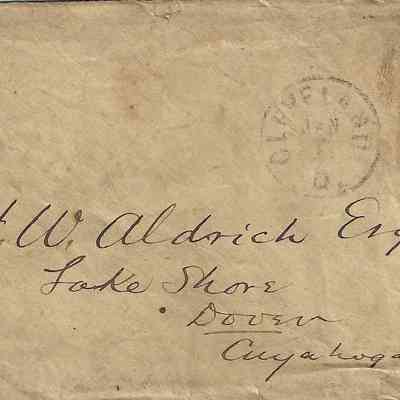 CLEVELAND
JAN
O.
W. Aldrich Esq
Lake Shore
Dover
Cuyahoga